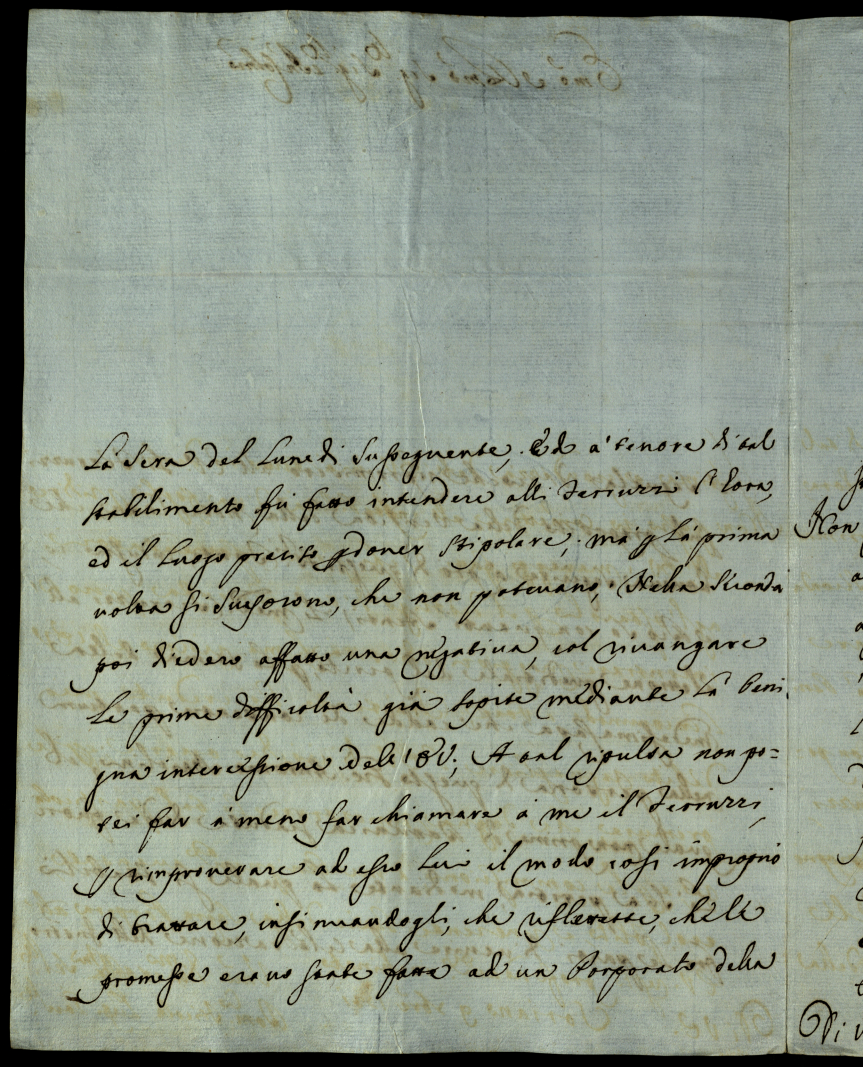 La sera del Lunedì susseguente, ed a' tenore di tal
stabilimento fù fatto intendere alli Terruzzi l'hora,
ed il luogo preciso p dover stipolare; mà p la prima
volta si scusorono, che non potevano; Nella seconda
poi diedero affatto una negativa, col rivangare
le prime difficoltà già sopite mediante la beni
gna intercessione dell' EV; A tal ripulsa non po=
tei far à meno far chiamare à me il Terruzzi,
p rimproverare ad esso lui il modo così improprio
di trattare, insinuandogli, che riflettesse, che le
promesse erano state fatte ad un Porporato della
Non
Di v